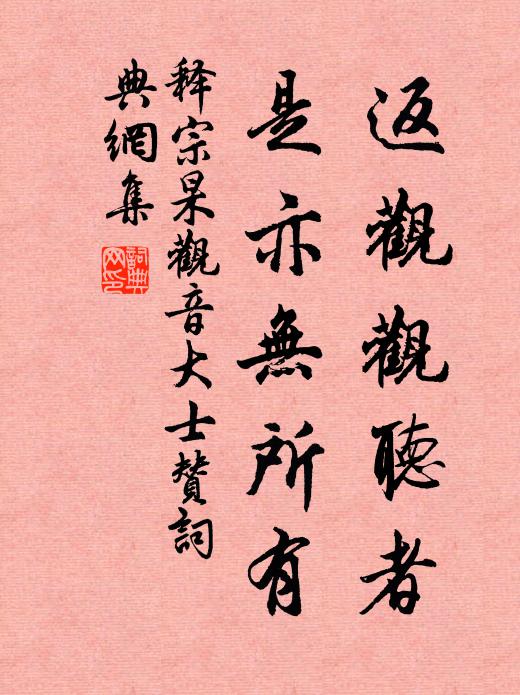 返觀觀聽者
是亦無所有
释宗杲觀音大士贊詞
典網集
詞典网印